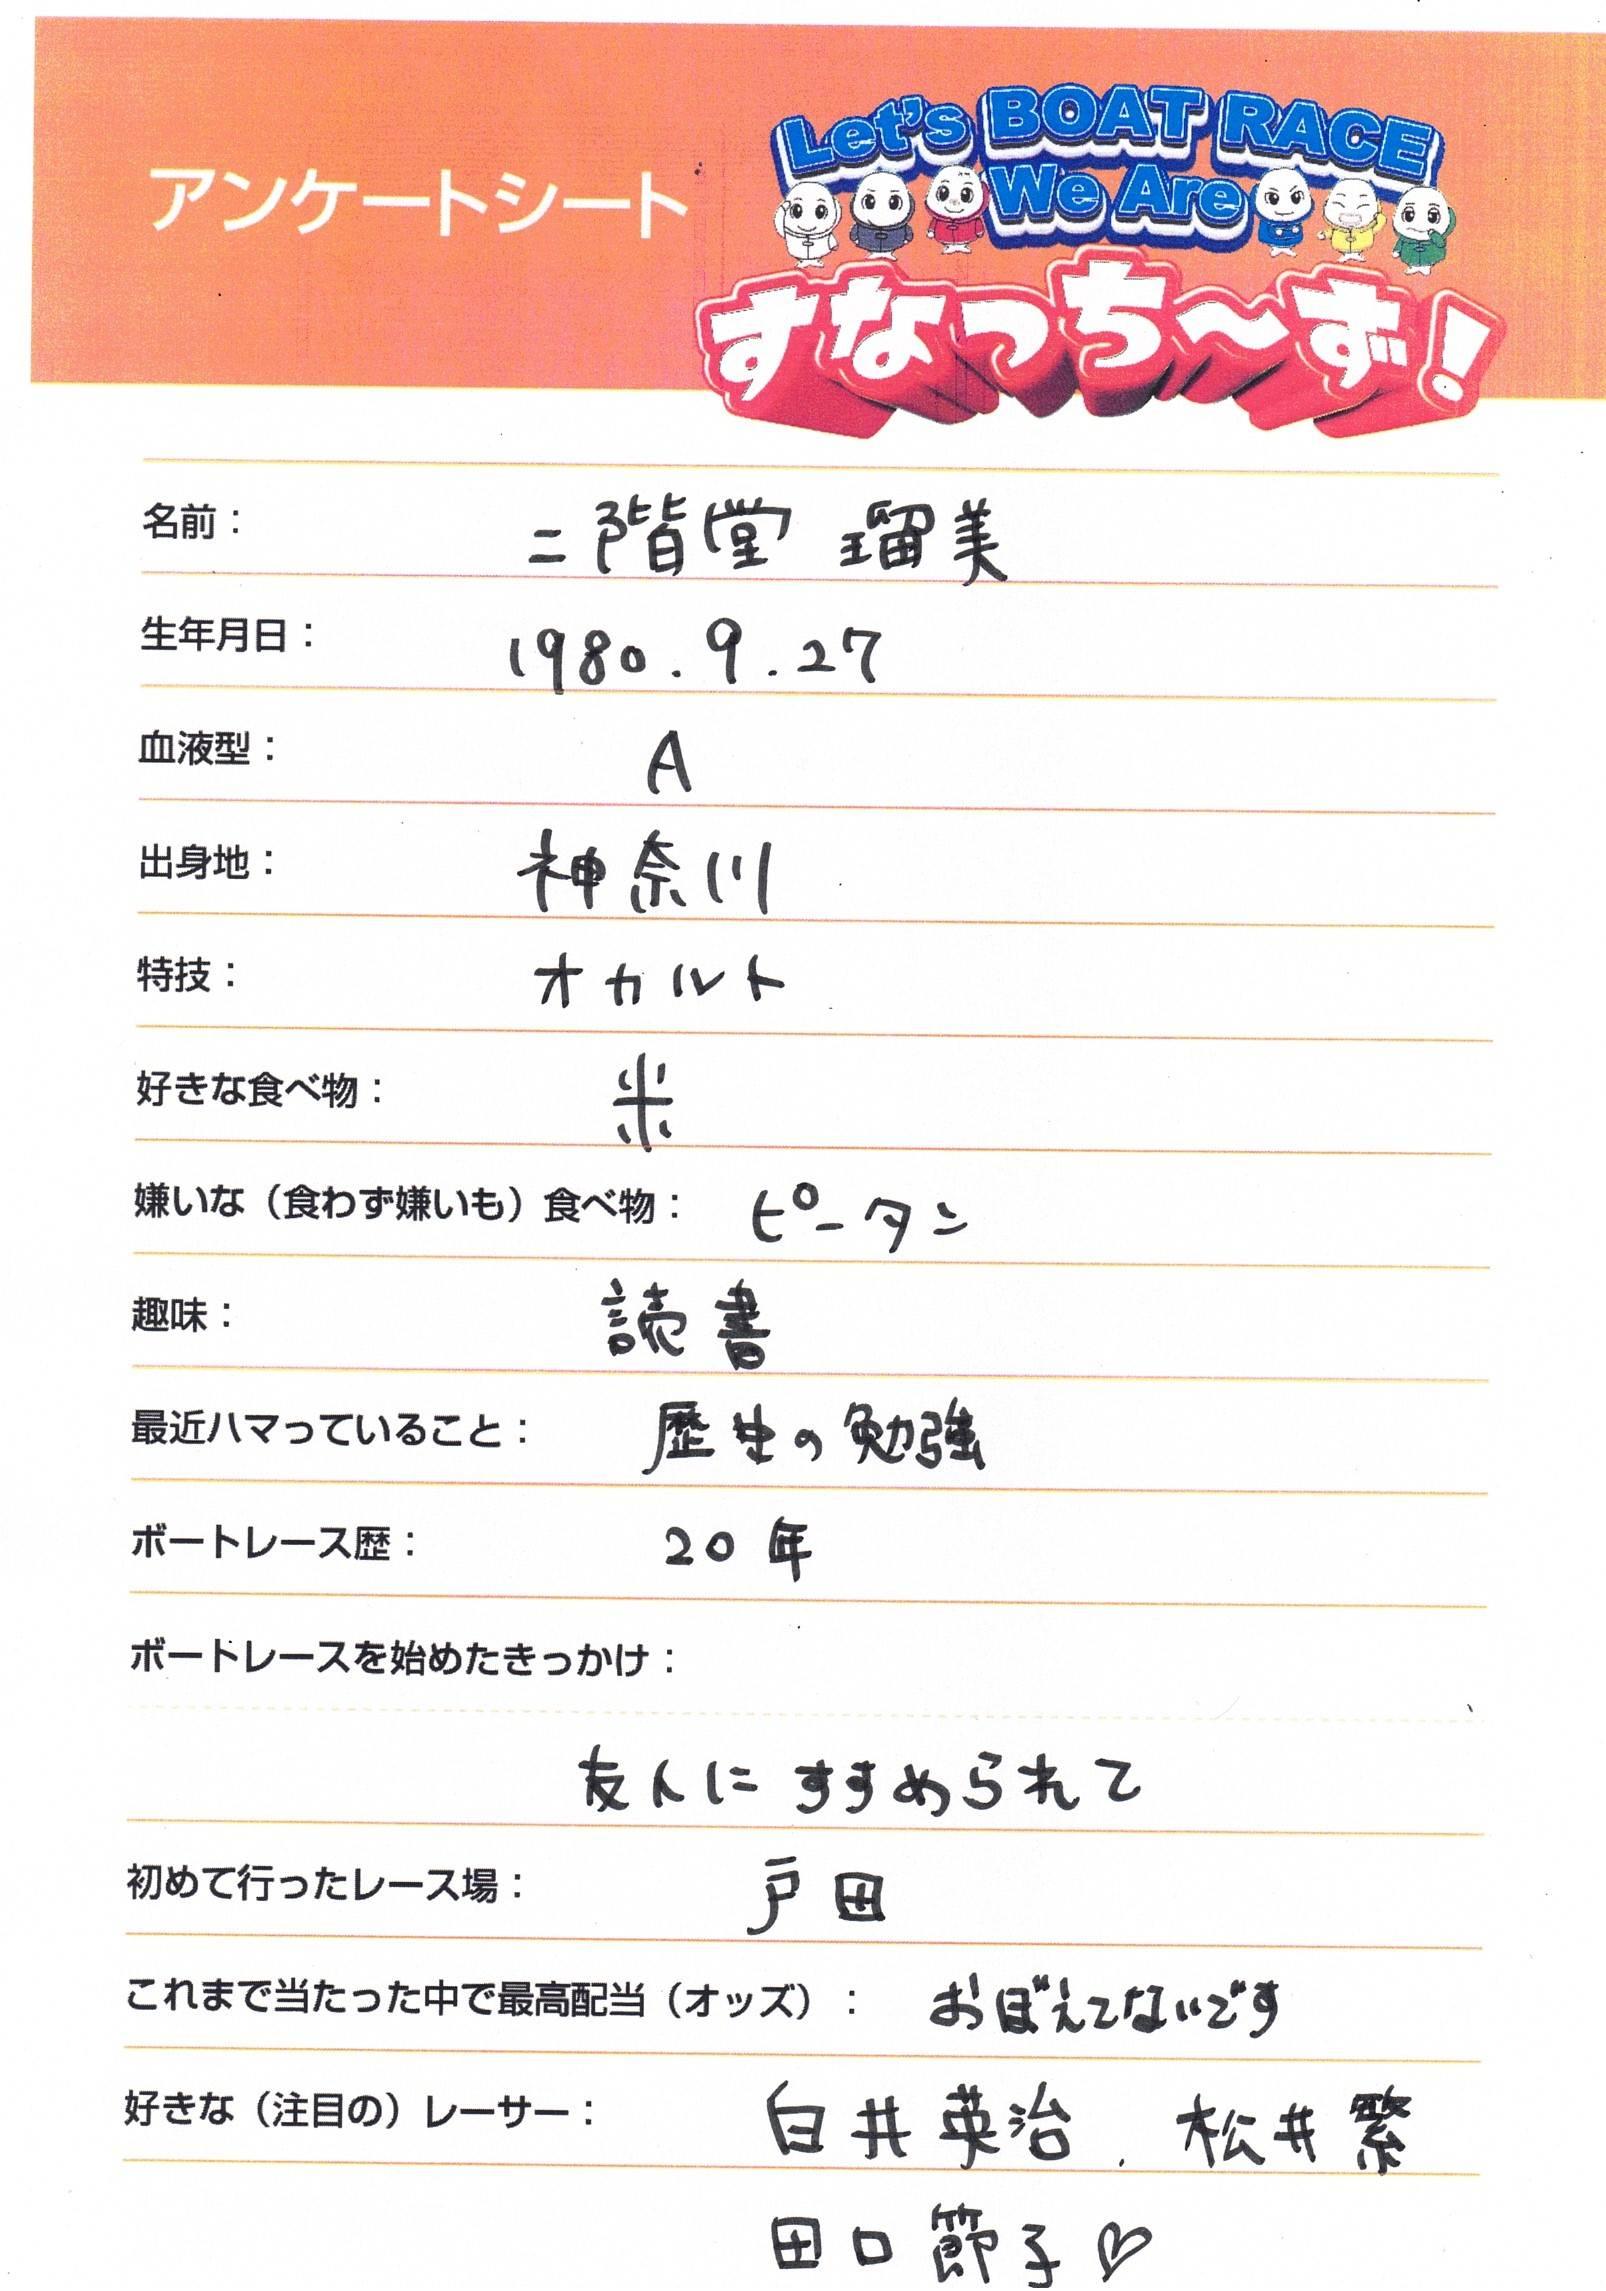 アンケートシート
Let's BOAT RACE
We Are
すなっち〜ず!
名前: 二階堂 瑠美
生年月日: 1980.9.27
血液型: A
出身地: 神奈川
特技: オカルト
好きな食べ物: 米
嫌いな(食わず嫌いも)食べ物: ピータン
趣味: 読書
最近ハマっていること: 歴史の勉強
ボートレース歴: 20年
ボートレースを始めたきっかけ:
友人にすすめられて
初めて行ったレース場: 戸田
これまで当たった中で最高配当(オッズ): おぼえてないです
好きな(注目の)レーサー: 白井英治、松井繁
田口節子♡